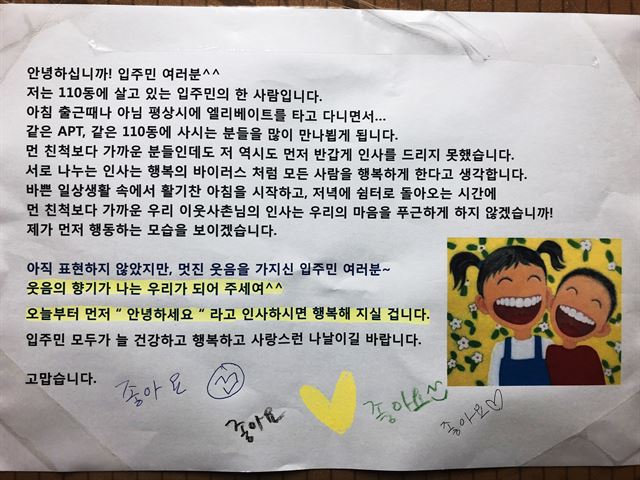 안녕하십니까! 입주민 여러분^^
저는 110동에 살고 있는 입주민의 한 사람입니다.
아침 출근때나 아님 평상시에 엘리베이트를 타고 다니면서...
같은 APT, 같은 110동에 사시는 분들을 많이 만나뵙게 됩니다.
먼 친척보다 가까운 분들인데도 저 역시도 먼저 반갑게 인사를 드리지 못했습니다.
서로 나누는 인사는 행복의 바이러스 처럼 모든 사람을 행복하게 한다고 생각합니다.
바쁜 일상생활 속에서 활기찬 아침을 시작하고, 저녁에 쉼터로 돌아오는 시간에
먼 친척보다 가까운 우리 이웃사촌님의 인사는 우리의 마음을 푸근하게 하지 않겠습니까!
제가 먼저 행동하는 모습을 보이겠습니다.
아직 표현하지 않았지만, 멋진 웃음을 가지신 입주민 여러분~
웃음의 향기가 나는 우리가 되어 주세여^^
오늘부터 먼저 " 안녕하세요 " 라고 인사하시면 행복해 지실 겁니다.
입주민 모두가 늘 건강하고 행복하고 사랑스런 나날이길 바랍니다.
고맙습니다.
좋아요
좋아요
좋아요^^
좋아요♡